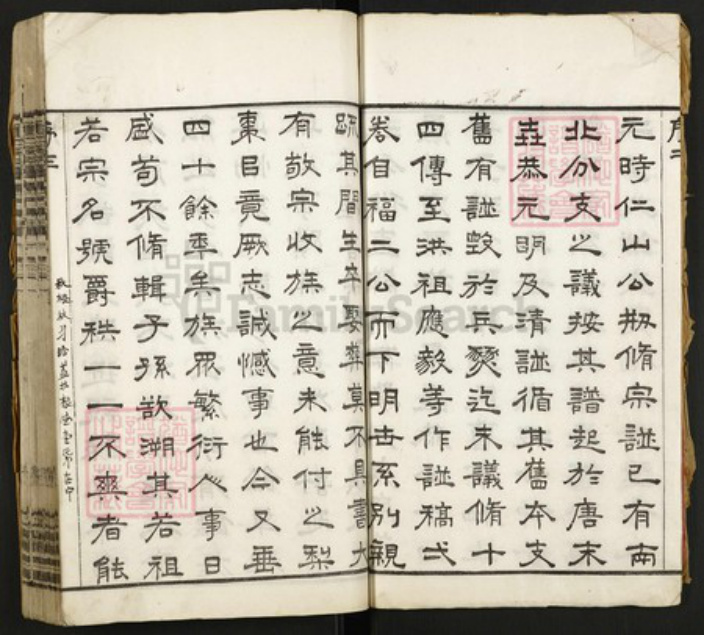 元時仁山公刱脩宗譜已有南
北分支之議按其譜起於唐末
恭元明及清譜循其舊本支
舊有譜毀於兵燹迄未議脩十
四傳至洪祖應毅等作譜稿弍
卷自福二公而下明世系別親
疏其間生卒娶葬莫不具書大
有敬宗收族之意未能付之梨
棗㠯竟厥志誠憾事也今又垂
四十餘年矣族眾繁衍人事日
盛苟不脩輯子孫欲溯其若祖
若宗名號爵秩一一不爽者能
序三
FamilySearch